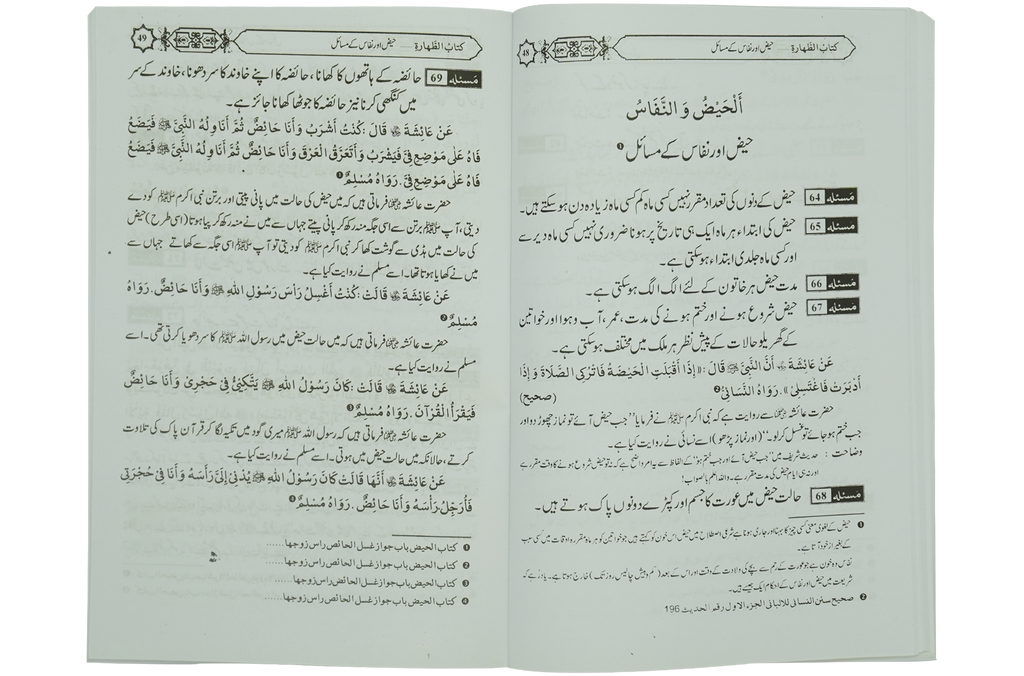 كتاب الطهارة ..... حیض اور نفاس کے مسائل
48
أَلْحَيْضُ وَ النَّفَاسُ
حیض اور نفاس کے مسائل ❶
مسئله 64 حیض کے دنوں کی تعداد مقرر نہیں کسی ماہ کم کسی ماہ زیادہ دن ہو سکتے ہیں۔
مسئله 65 حیض کی ابتداء ہر ماہ ایک ہی تاریخ پر ہونا ضروری نہیں کسی ماہ دیر سے
اور کسی ماہ جلدی ابتداء ہو سکتی ہے۔
مسئله 66 مدت حیض ہر خاتون کے لئے الگ الگ ہو سکتی ہے۔
مسئله 67 حیض شروع ہونے اور ختم ہونے کی مدت، عمر، آب و ہوا اور خواتین
کے گھریلو حالات کے پیش نظر ہر ملک میں مختلف ہو سکتی ہے۔
عَنْ عَائِشَةَ ؓ أَنَّ النَّبِيَّ ﷺ قَالَ : ((إِذَا أَقْبَلَتِ الْحَيْضَةُ فَاتْرُكِي الصَّلَاةَ وَ إِذَا
أَدْبَرَتْ فَاغْتَسِلِيْ)). رَوَاهُ النَّسَائِيُّ ❷ (صحیح)
حضرت عائشہ ؓ سے روایت ہے کہ نبی اکرم ﷺ نے فرمایا ”جب حیض آئے تو نماز چھوڑ دو اور
جب ختم ہو جائے تو غسل کر لو۔“ (اور نماز پڑھو) اسے نسائی نے روایت کیا ہے۔
وضاحت : حدیث شریف میں ”جب حیض آئے اور جب ختم ہو“ کے الفاظ سے یہ امر واضح ہے کہ نہ تو حیض شروع ہونے کا وقت مقرر ہے
اور نہ ہی ایام حیض کی مدت مقرر ہے۔ واللہ اعلم بالصواب!
مسئله 68 حالت حیض میں عورت کا جسم اور کپڑے دونوں پاک ہوتے ہیں۔
❶ حیض کے لغوی معنی کسی چیز کا بہنا اور جاری ہونا ہے شرعی اصطلاح میں حیض اس خون کو کہتے ہیں جو خواتین کو ہر ماہ مقررہ اوقات میں کسی سبب
کے بغیر از خود آتا ہے۔
نفاس وہ خون ہے جو عورت کے رحم سے بچے کی ولادت کے وقت اور اس کے بعد (کم و بیش چالیس روز تک) خارج ہوتا ہے۔ یاد رہے کہ
شریعت میں حیض اور نفاس کے احکام ایک جیسے ہیں۔
❷ صحيح سنن النسائى للالبانى الجزء الاول رقم الحديث 196
كتاب الطهارة ..... حیض اور نفاس کے مسائل
49
مسئله 69 حائضہ کے ہاتھوں کا کھانا، حائضہ کا اپنے خاوند کا سر دھونا، خاوند کے سر
میں کنگھی کرنا نیز حائضہ کا جوٹھا کھانا جائز ہے۔
عَنْ عَائِشَةَ ؓ قَالَ : كُنْتُ أَشْرَبُ وَ أَنَا حَائِضٌ ثُمَّ أُنَاوِلُهُ النَّبِيَّ ﷺ فَيَضَعُ
فَاهُ عَلَى مَوْضِعِ فِيَّ فَيَشْرَبُ وَ أَتَعَرَّقُ الْعَرْقَ وَ أَنَا حَائِضٌ ثُمَّ أُنَاوِلُهُ النَّبِيَّ ﷺ فَيَضَعُ
فَاهُ عَلَى مَوْضِعِ فِيَّ . رَوَاهُ مُسْلِمٌ ❶
حضرت عائشہ ؓ فرماتی ہیں کہ میں حیض کی حالت میں پانی پیتی اور برتن نبی اکرم ﷺ کو دے
دیتی، آپ ﷺ برتن سے اسی جگہ منہ رکھ کر پانی پیتے جہاں سے میں نے منہ رکھ کر پیا ہوتا (اسی طرح) حیض
کی حالت میں ہڈی سے گوشت کھا کر نبی اکرم ﷺ کو دیتی تو آپ ﷺ اسی جگہ سے کھاتے جہاں سے
میں نے کھایا ہوتا تھا۔ اسے مسلم نے روایت کیا ہے۔
عَنْ عَائِشَةَ ؓ قَالَتْ : كُنْتُ أَغْسِلُ رَأْسَ رَسُوْلِ اللهِ ﷺ وَ أَنَا حَائِضٌ . رَوَاهُ
مُسْلِمٌ ❷
حضرت عائشہ ؓ فرماتی ہیں کہ میں حالت حیض میں رسول اللہ ﷺ کا سر دھویا کرتی تھی۔ اسے
مسلم نے روایت کیا ہے۔
عَنْ عَائِشَةَ ؓ قَالَتْ : كَانَ رَسُوْلُ اللهِ ﷺ يَتَّكِئُ فِيْ حَجْرِيْ وَ أَنَا حَائِضٌ
فَيَقْرَأُ الْقُرْآنَ . رَوَاهُ مُسْلِمٌ ❸
حضرت عائشہ ؓ فرماتی ہیں کہ رسول اللہ ﷺ میری گود میں تکیہ لگا کر قرآن پاک کی تلاوت
کرتے، حالانکہ میں حالت حیض میں ہوتی۔ اسے مسلم نے روایت کیا ہے۔
عَنْ عَائِشَةَ ؓ أَنَّهَا قَالَتْ كَانَ رَسُوْلُ اللهِ ﷺ يُدْنِيْ إِلَيَّ رَأْسَهُ وَ أَنَا فِيْ حُجْرَتِيْ
فَأُرَجِّلُ رَأْسَهُ وَ أَنَا حَائِضٌ . رَوَاهُ مُسْلِمٌ ❹
❶ كتاب الحيض باب جواز غسل الحائض راس زوجها ......
❷ كتاب الحيض باب جواز غسل الحائض راس زوجها ......
❸ كتاب الحيض باب جواز غسل الحائض راس زوجها ......
❹ كتاب الحيض باب جواز غسل الحائض راس زوجها ......